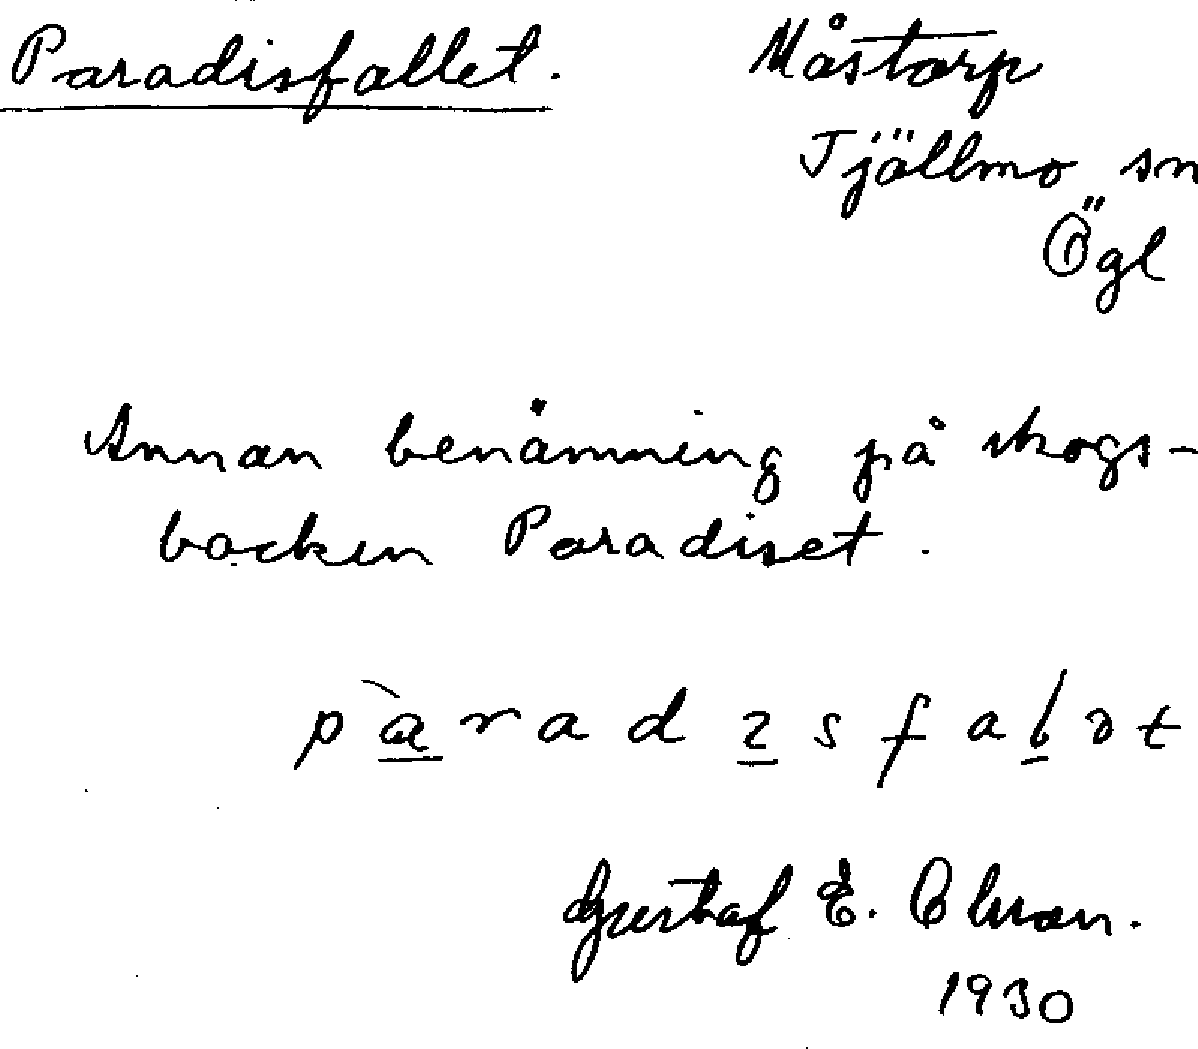 Paradisfallet. Måstorp
Tjällmo sn
Ögl
Annan benämning på skogs-
backen Paradiset.
Gustaf E.
1930